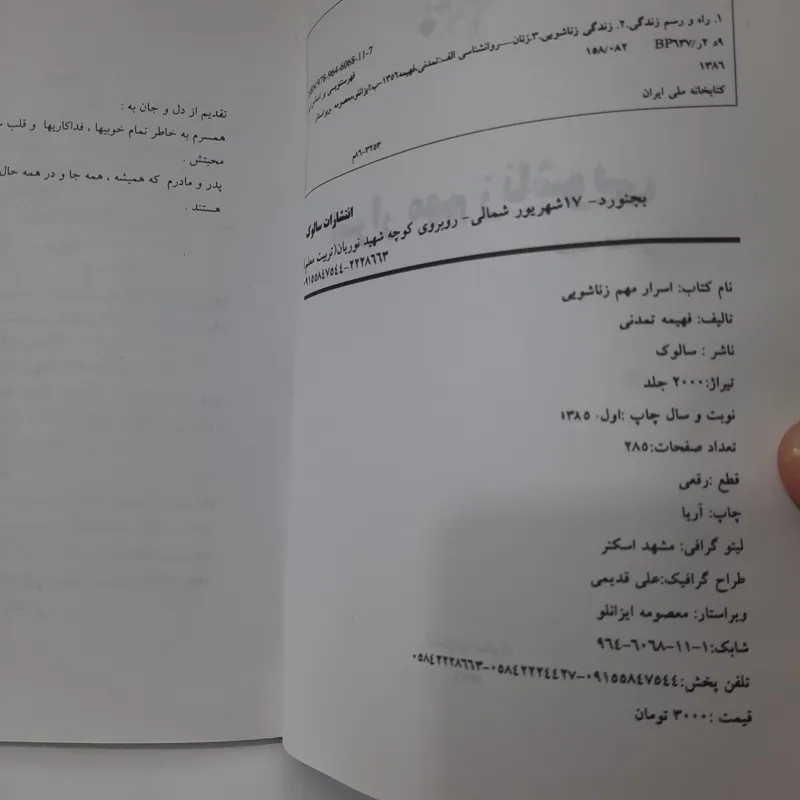 ۱. راه و رسم زندگی.۲. زندگی زناشویی.۳.زنان—روانشناسی الف:تمدنی،فهیمه۱۳۵۶-ب:ایزانلو،معصومه ویراستار
۹د ۲ر/BP۶۳۷ ۱۵۸/۰۸۲
ISBN:978-964-6068-11-7
فهرستنویسی بر اساس
۱۳۸۶
کتابخانه ملی ایران
۱۶-۳۲۵۳م
انتشارات سالوک
بجنورد- ۱۷شهریور شمالی- روبروی کوچه شهید نوریان(تربیت معلم)
۰۹۱۵۵۸۴۷۵۴۴-۲۲۲۸۶۶۳
نام کتاب: اسرار مهم زناشویی
تالیف: فهیمه تمدنی
ناشر : سالوک
تیراژ:۲۰۰۰ جلد
نوبت و سال چاپ :اول- ۱۳۸۵
تعداد صفحات:۲۸۵
قطع :رقعی
چاپ: آریا
لیتو گرافی: مشهد اسکنر
طراح گرافیک:علی قدیمی
ویراستار: معصومه ایزانلو
شابک:۱-۱۱-۶۰۶۸-۹۶۴
تلفن پخش:۰۹۱۵۵۸۴۷۵۴۴-۰۵۸۴۲۲۲۴۴۲۷-۰۵۸۴۲۲۲۸۶۶۳
قیمت :۳۰۰۰ تومان
تقدیم از دل و جان به :
همسرم به خاطر تمام خوبیها ، فداکاریها و قلب
محبتش .
پدر و مادرم که همیشه ، همه جا و در همه حال
هستند .